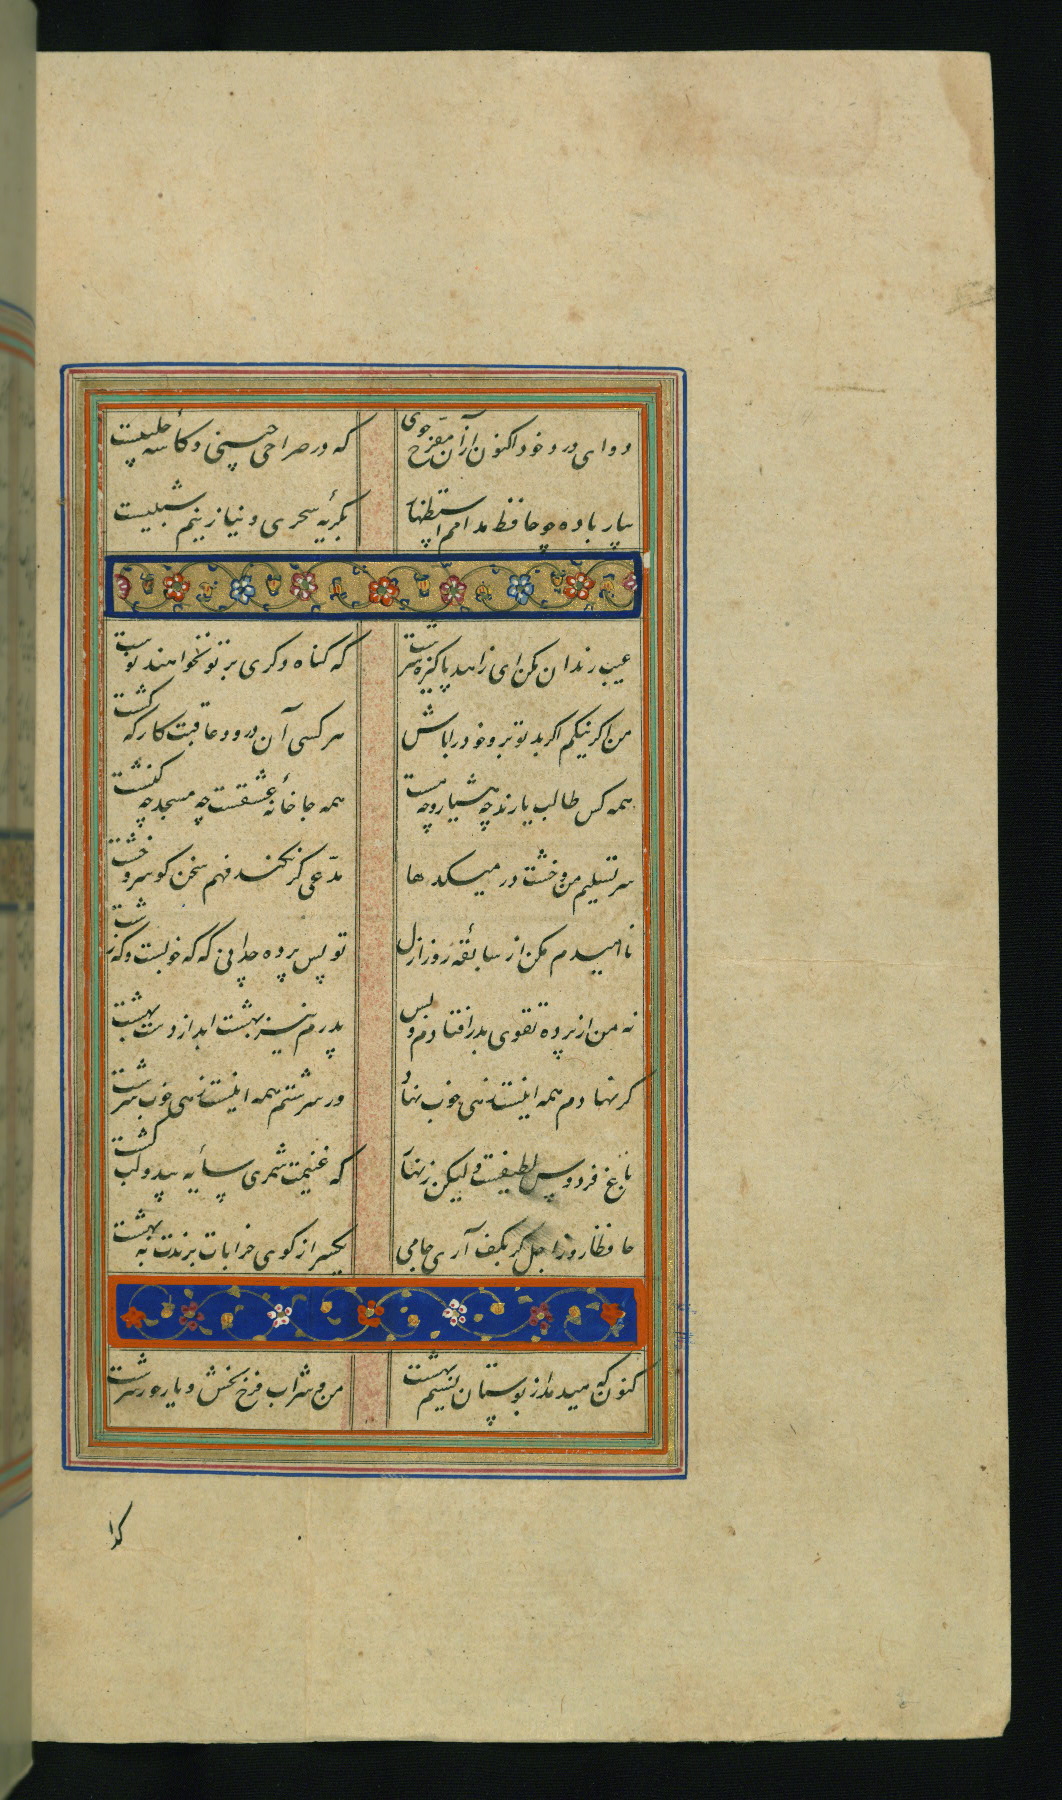 دوای درد خود اکنون از آن مفرّح جوی که در صراحی چینی و کاسهٔ حلبیست
بیار باده چو حافظ مدامم استظهار بگریهٔ سحری و نیاز نیم شبیست
عیب رندان مکن ای زاهد پاکیزه سرشت که گناه دگری بر تو نخواهند نوشت
من اگر نیکم اگر بد تو برو خود را باش هر کسی آن درود عاقبت کار که کشت
همه کس طالب یارند چه هشیار و چه مست همه جا خانهٔ عشقست چه مسجد چه کنشت
سر تسلیم من و خشت در میکدها مدّعی گر نکند فهم سخن گو سر و خشت
ناامیدم مکن از سابقهٔ روز ازل تو پس پرده چه دانی که که خوبست و که زشت
نه من از پرده تقوی بدر افتادم و بس پدرم نیز بهشت ابد از دست بهشت
گر نهادم همه اینست زهی خوب نهاد ور سرشتم همه اینست زهی خوب سرشت
باغ فردوس لطیفست ولیکن زنهار که غنیمت شمری سایهٔ بید و لب کشت
حافظا روز اجل گر بکف آری جامی یکسر از کوی خرابات برندت به بهشت
کنون که میدمد از بوستان نسیم بهشت من و شراب فرح بخش و یار حور سرشت
گدا